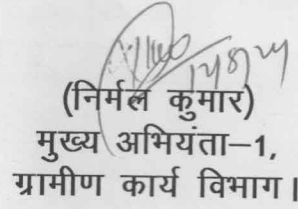 12/8/24
(निर्मल कुमार)
मुख्य अभियंता–1,
ग्रामीण कार्य विभाग।